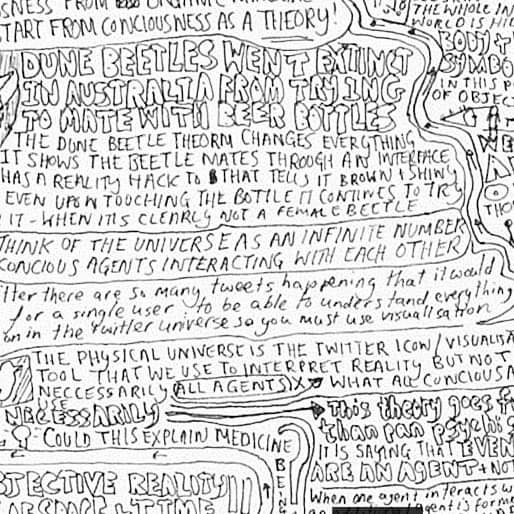 SNESS FROM ORGANIC
START FROM CONCIOUSNESS AS A THEORY!
DUNE BEETLES WENT EXTINCT
IN AUSTRALIA FROM TRYING
TO MATE WITH BEER BOTTLES
THE DUNE BEETLE THEORM CHANGES EVERGTHING
IT SHOWS THE BEETLE MATES THROUGH AN INTERFACE
HAS A REALITY HACK TO THAT TELLS IT BROWN + SHINY
EVEN UPON TOUCHING THE BOTTLE IT CONTINUES TO TRY
IT - WHEN IT IS CLEARLY NOT A FEMALE BEETLE
THINK OF THE UNIVERSE AS AN INFINITE NUMBER
CONCIOUS AGENTS INTERACTING WITH EACH OTHER
itter there are so many tweets happening that it would
for a single user to be able to understand everything
on in the twitter universe so you must use visualisation
THE PHYSICAL UNIVERSE IS THE TWITTER ICON / VISUALISA
TOOL THAT WE USE TO INTERPRET REALITY BUT NOT
NECCESSARILY (ALL AGENTS) WHAT ALL CONCIOUS A
NECESSARILY
COULD THIS EXPLAIN MEDICINE
BEING
JECTIVE REALITY
SPACE + TIME
this theory goes f
than pan psychis
IT IS SAYING THAT EVEN
ARE AN AGENT + NOT
When one agent interacts w
agent is forme
THE WHOLE IN
WORLD IS HI
BODY +
SYMBO
IN THIS P
OF OBJEC
THO